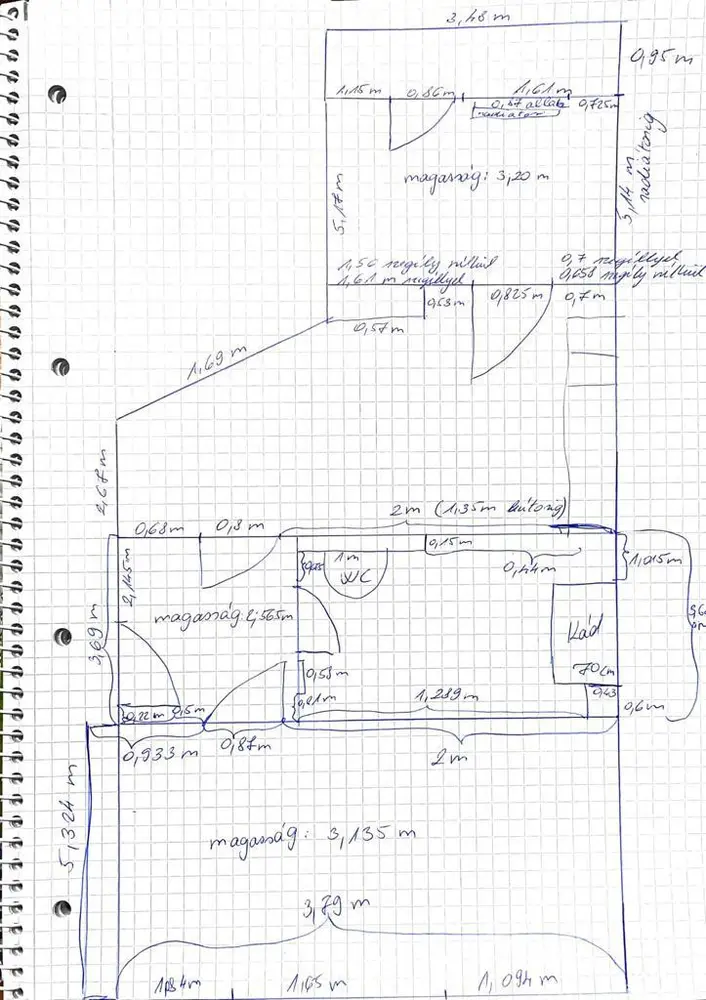 3,48 m
0,95 m
1,15 m 0,86 m 1,61 m
0,47 ablak 0,725 m
radiátor
magasság: 3,20 m
5,17 m
3,14 m
radiátorig
1,56 szegély nélkül
1,61 m szegéllyel
0,7 szegéllyel
0,658 szegély nélkül
0,53 m 0,825 m 0,7 m
0,57 m
1,69 m
2,67 m
2m (1,35m bútorig)
0,68 m 0,8 m
0,15 m
0,44 m
1,015 m
1 m
WC
2,145 m
3,69 m
magasság: 2,565 m
Kád
70 cm
0,53 m
0,81 m
1,239 m
0,43
0,6 m
0,22 m 0,5 m
0,933 m 0,87 m
2 m
5,324 m
magasság: 3,135 m
3,79 m
1,65 m 1,094 m